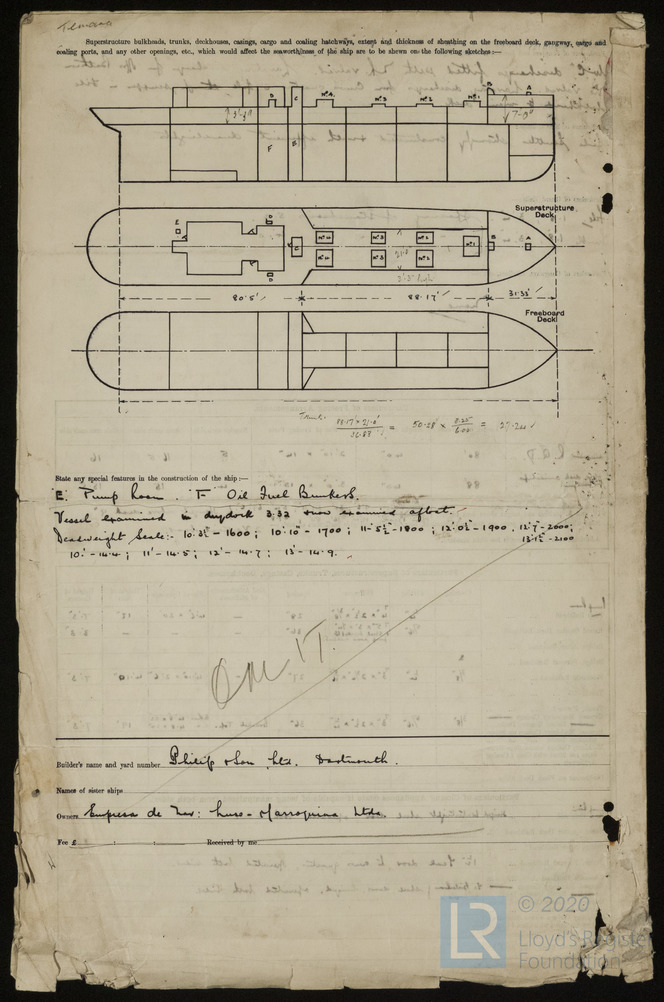 Superstructure bulkheads, trunks, deckhouses, casings, cargo and coaling hatchways, extent and thickness of sheathing on the freeboard deck, gangway, cargo and
coaling ports, and any other openings, etc., which would affect the seaworthiness of the ship are to be shewn on the following sketches:—
D C Nº4 Nº3 Nº2 Nº1 B A
7'-0"
F
Superstructure
Deck
E D C Nº4 Nº3 Nº2 Nº1 B A
Nº4 Nº3 Nº2
D
80.5' 88.17' 31.33'
Freeboard
Deck
Trunk
88.17' × 21.0' / 36.83' = 50.28 × / 6.00 =
State any special features in the construction of the ship:—
"E" Pump Room. "F" Oil Fuel Bunkers.
Vessel examined in drydock 3.32 now examined afloat.
Deadweight Scale:- 10'3½ – 1600; 10'10" – 1700; 11'5½ – 1800; 12'0½ – 1900, 12'7" – 2000;
13'1½ – 2100
10' – 14.4; 11' – 14.5; 12' – 14.7; 13' – 14.9.
OMIT
Builder's name and yard number Philip & Son Ltd. Dartmouth.
Names of sister ships
Owners Empresa de Nav: Luso-Marroquina Ltda.
Fee £ : : Received by me
LR © 2020
Lloyd's Register
Foundation